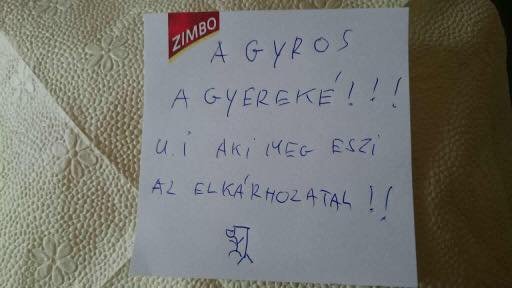 ZIMBO
A GYROS
A GYEREKÉ!!!
U.I AKI MEG ESZI
AZ ELKÁRHOZATAL!!